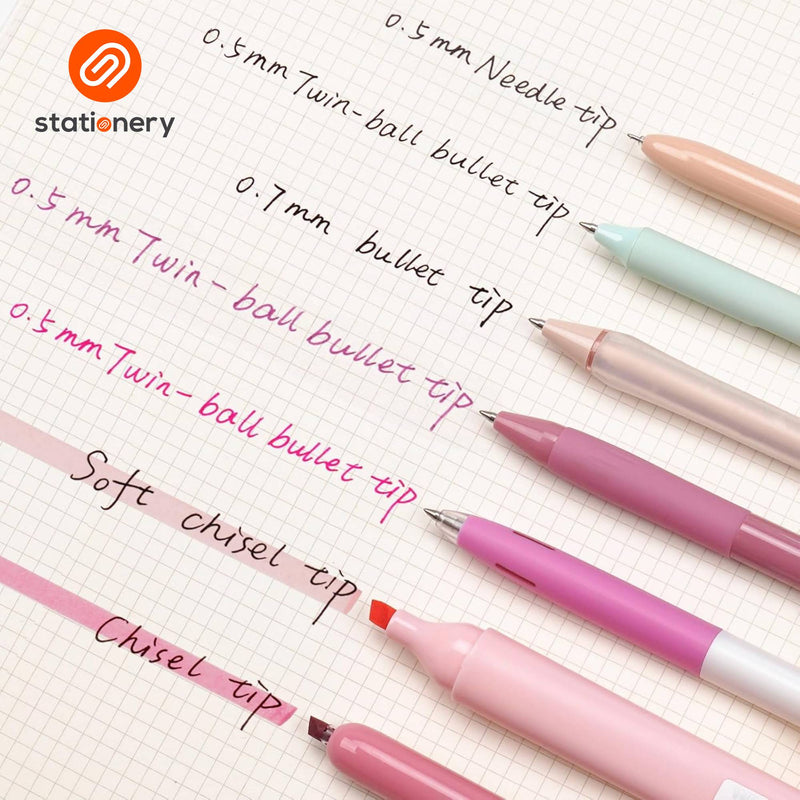 stationery
0.5mm Needle tip
0.5mm Twin-ball bullet tip
0.7mm bullet tip
0.5mm Twin-ball bullet tip
0.5mm Twin-ball bullet tip
Soft chisel tip
Chisel tip